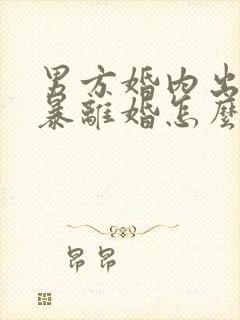 男方婚内出
暴離婚怎麼
昂昂